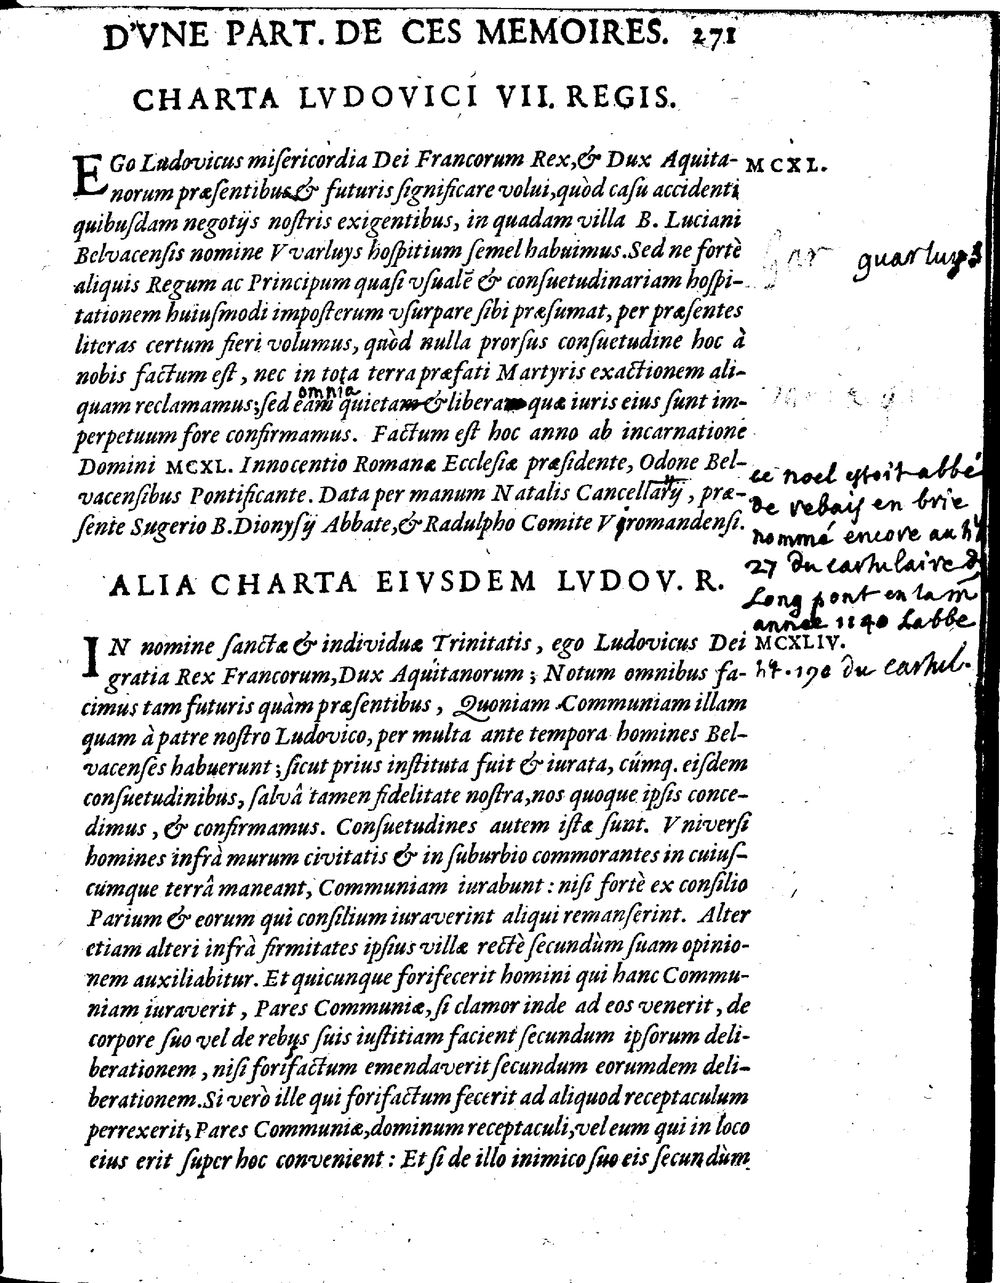 D'VNE PART. DE CES MEMOIRES. 271
CHARTA LVDOVICI VII. REGIS.
EGo Ludovicus miſericordia Dei Francorum Rex, & Dux Aquita- MCXL.
norum præſentibus & futuris ſignificare volui, quòd caſu accidenti
quibuſdam negotijs noſtris exigentibus, in quadam villa B. Luciani
Belvacenſis nomine Vvarluys hoſpitium ſemel habuimus. Sed ne fortè
guarluys
aliquis Regum ac Principum quaſi vſualē & conſuetudinariam hoſpi-
tationem huiuſmodi impoſterum vſurpare ſibi præſumat, per præſentes
literas certum fieri volumus, quòd nulla prorſus conſuetudine hoc à
nobis factum eſt, nec in tota terra præfati Martyris exactionem ali-
omnia
quam reclamamus; ſed eam quietam & liberam quæ iuris eius ſunt im-
perpetuum fore confirmamus. Factum eſt hoc anno ab incarnatione
Domini MCXL. Innocentio Romanæ Eccleſiæ præſidente, Odone Bel-
vacenſibus Pontificante. Data per manum Natalis Cancellarij, præ-
ſente Sugerio B. Dionyſij Abbate, & Radulpho Comite Viromandenſi.
ce noel estoit abbé
de rebais en brie
nommé encore au ht
27 du cartulaire d
Long pont en la m
année 1140 Labbe
ALIA CHARTA EIVSDEM LVDOV. R.
IN nomine ſanctæ & individuæ Trinitatis, ego Ludovicus Dei MCXLIV.
gratia Rex Francorum, Dux Aquitanorum; Notum omnibus fa- ht. 190 du cartul.
cimus tam futuris quàm præſentibus, Quoniam Communiam illam
quam à patre noſtro Ludovico, per multa ante tempora homines Bel-
vacenſes habuerunt; ſicut prius inſtituta fuit & iurata, cúmq. eiſdem
conſuetudinibus, ſalvâ tamen fidelitate noſtra, nos quoque ipſis conce-
dimus, & confirmamus. Conſuetudines autem iſtæ ſunt. Vniverſi
homines infrà murum civitatis & in ſuburbio commorantes in cuiuſ-
cúmque terrâ maneant, Communiam iurabunt: niſi fortè ex conſilio
Parium & eorum qui conſilium iuraverint aliqui remanſerint. Alter
etiam alteri infrà firmitates ipſius villæ rectè ſecundùm ſuam opinio-
nem auxiliabitur. Et quicunque forifecerit homini qui hanc Commu-
niam iuraverit, Pares Communiæ, ſi clamor inde ad eos venerit, de
corpore ſuo vel de rebus ſuis iuſtitiam facient ſecundum ipſorum deli-
berationem, niſi forifactum emendaverit ſecundum eorumdem deli-
berationem. Si verò ille qui forifactum fecerit ad aliquod receptaculum
perrexerit; Pares Communiæ, dominum receptaculi, vel eum qui in loco
eius erit ſuper hoc convenient: Et ſi de illo inimico ſuo eis ſecundùm